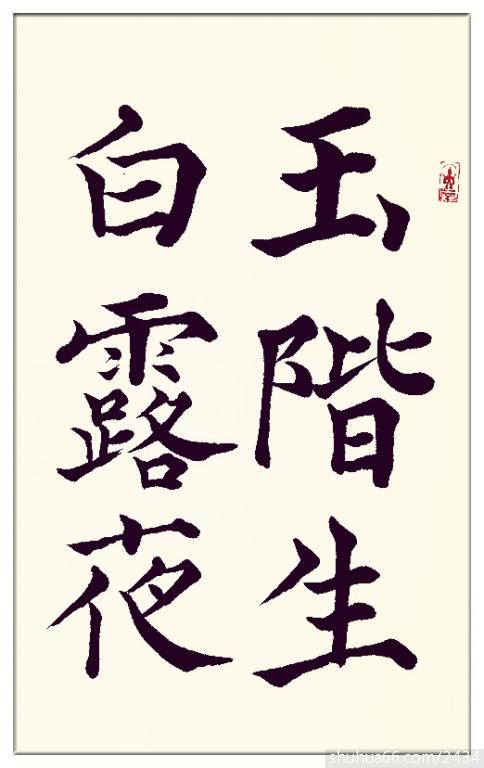 玉階生
白露夜
shuhua66.com/2434